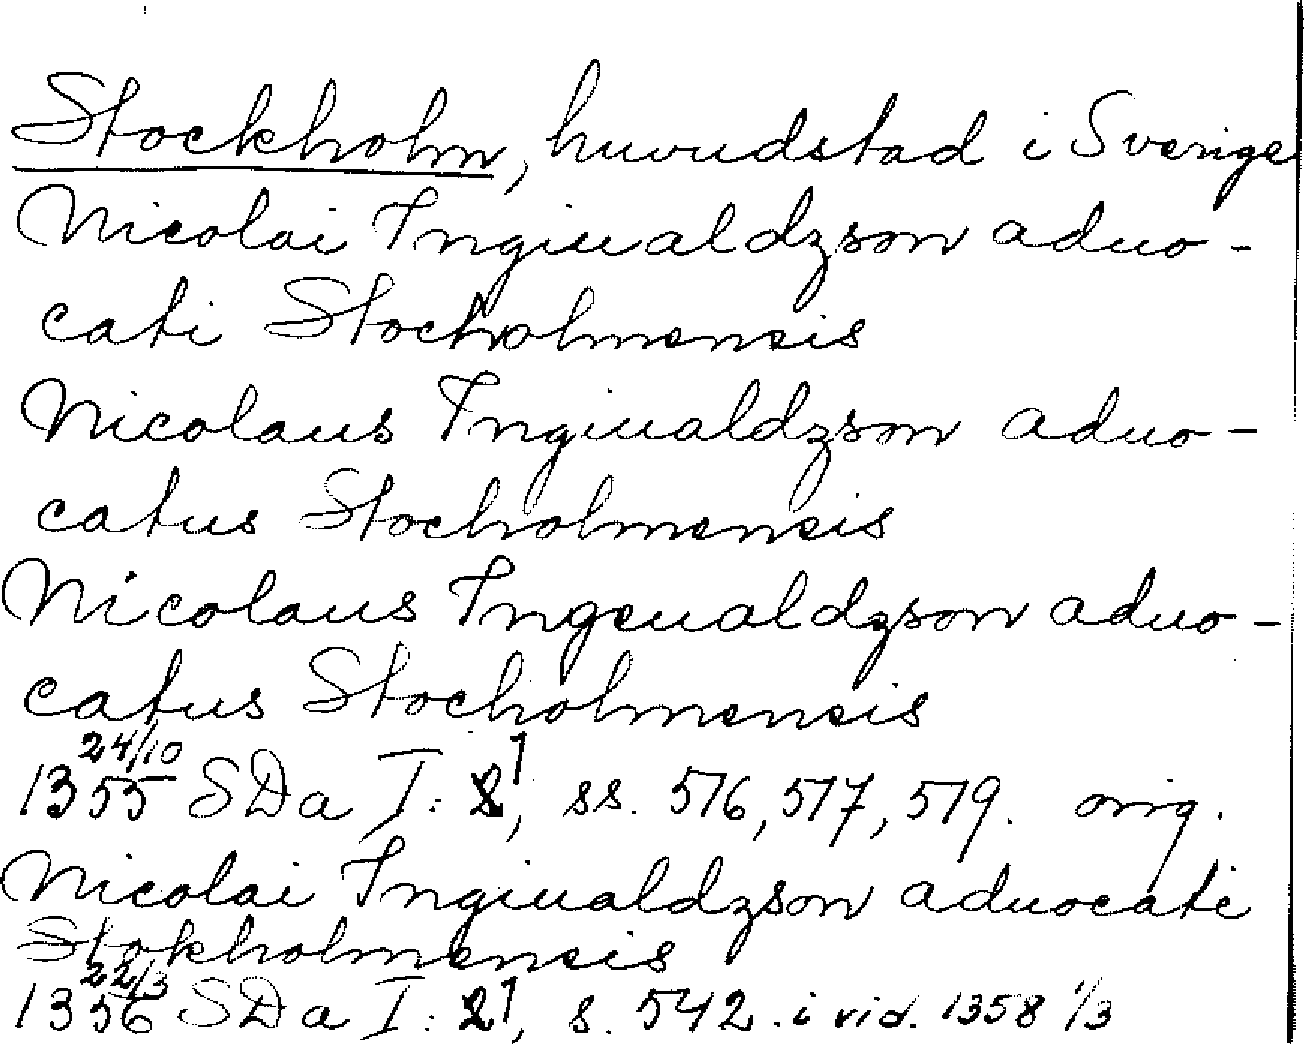 Stockholm, huvudstad i Sverige
Nicolai Ingiualdzson aduo-
cati Stocholmensis
Nicolaus Ingiualdzson aduo-
catus Stocholmensis
Nicolaus Ingeualdzson aduo-
catus Stocholmensis
1355 24/10 SDa I: 1, ss. 576, 577, 579. orig.
Nicolai Ingiualdzson aduocati
Stokholmensis
1356 22/3 SDa I: 1, s. 542. i vid. 1358 1/3